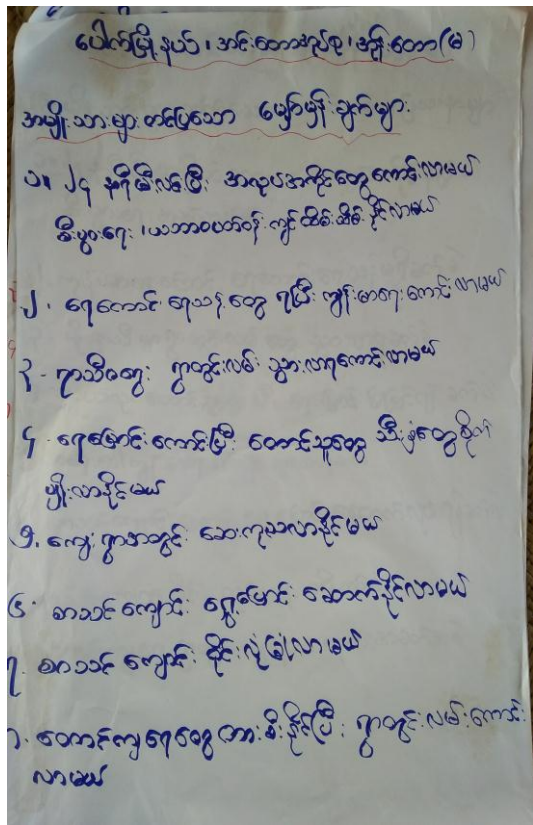 ပေါက်မြို့နယ်၊ အင်းတောအုပ်စု၊ အင်းတော(မ)
အမျိုးသားများတင်ပြသော မျှော်မှန်းချက်များ
၁။ ၂၄ နာရီမီးလင်းပြီး အလုပ်အကိုင်တွေကောင်းလာမယ်
စီးပွားရေး၊ သဘာဝပတ်ဝန်းကျင်ထိန်းသိမ်းနိုင်လာမယ်
၂. ရေကောင်းရေသန့်တွေ ရပြီး ကျန်းမာရေးကောင်းလာမယ်
၃. ရာသီမရွေး ရွာတွင်းလမ်း သွားလာရကောင်းလာမယ်
၄. ရေမြောင်းကောင်းပြီး တောင်သူတွေ သီးနှံတွေစိုက်
ပျိုးလာနိုင်မယ်
၅. ကျေးရွာအတွင်း ဆေးကုသလာနိုင်မယ်
၆. စာသင်ကျောင်း ရေမြောင်း ဆောက်နိုင်လာမယ်
၇. စာသင်ကျောင်း ဝိုင်းလုံခြုံလာမယ်
၈. တောင်ကျရေတွေ ကာဆီးနိုင်ပြီး ရွာတွင်းလမ်းကောင်း
လာမယ်